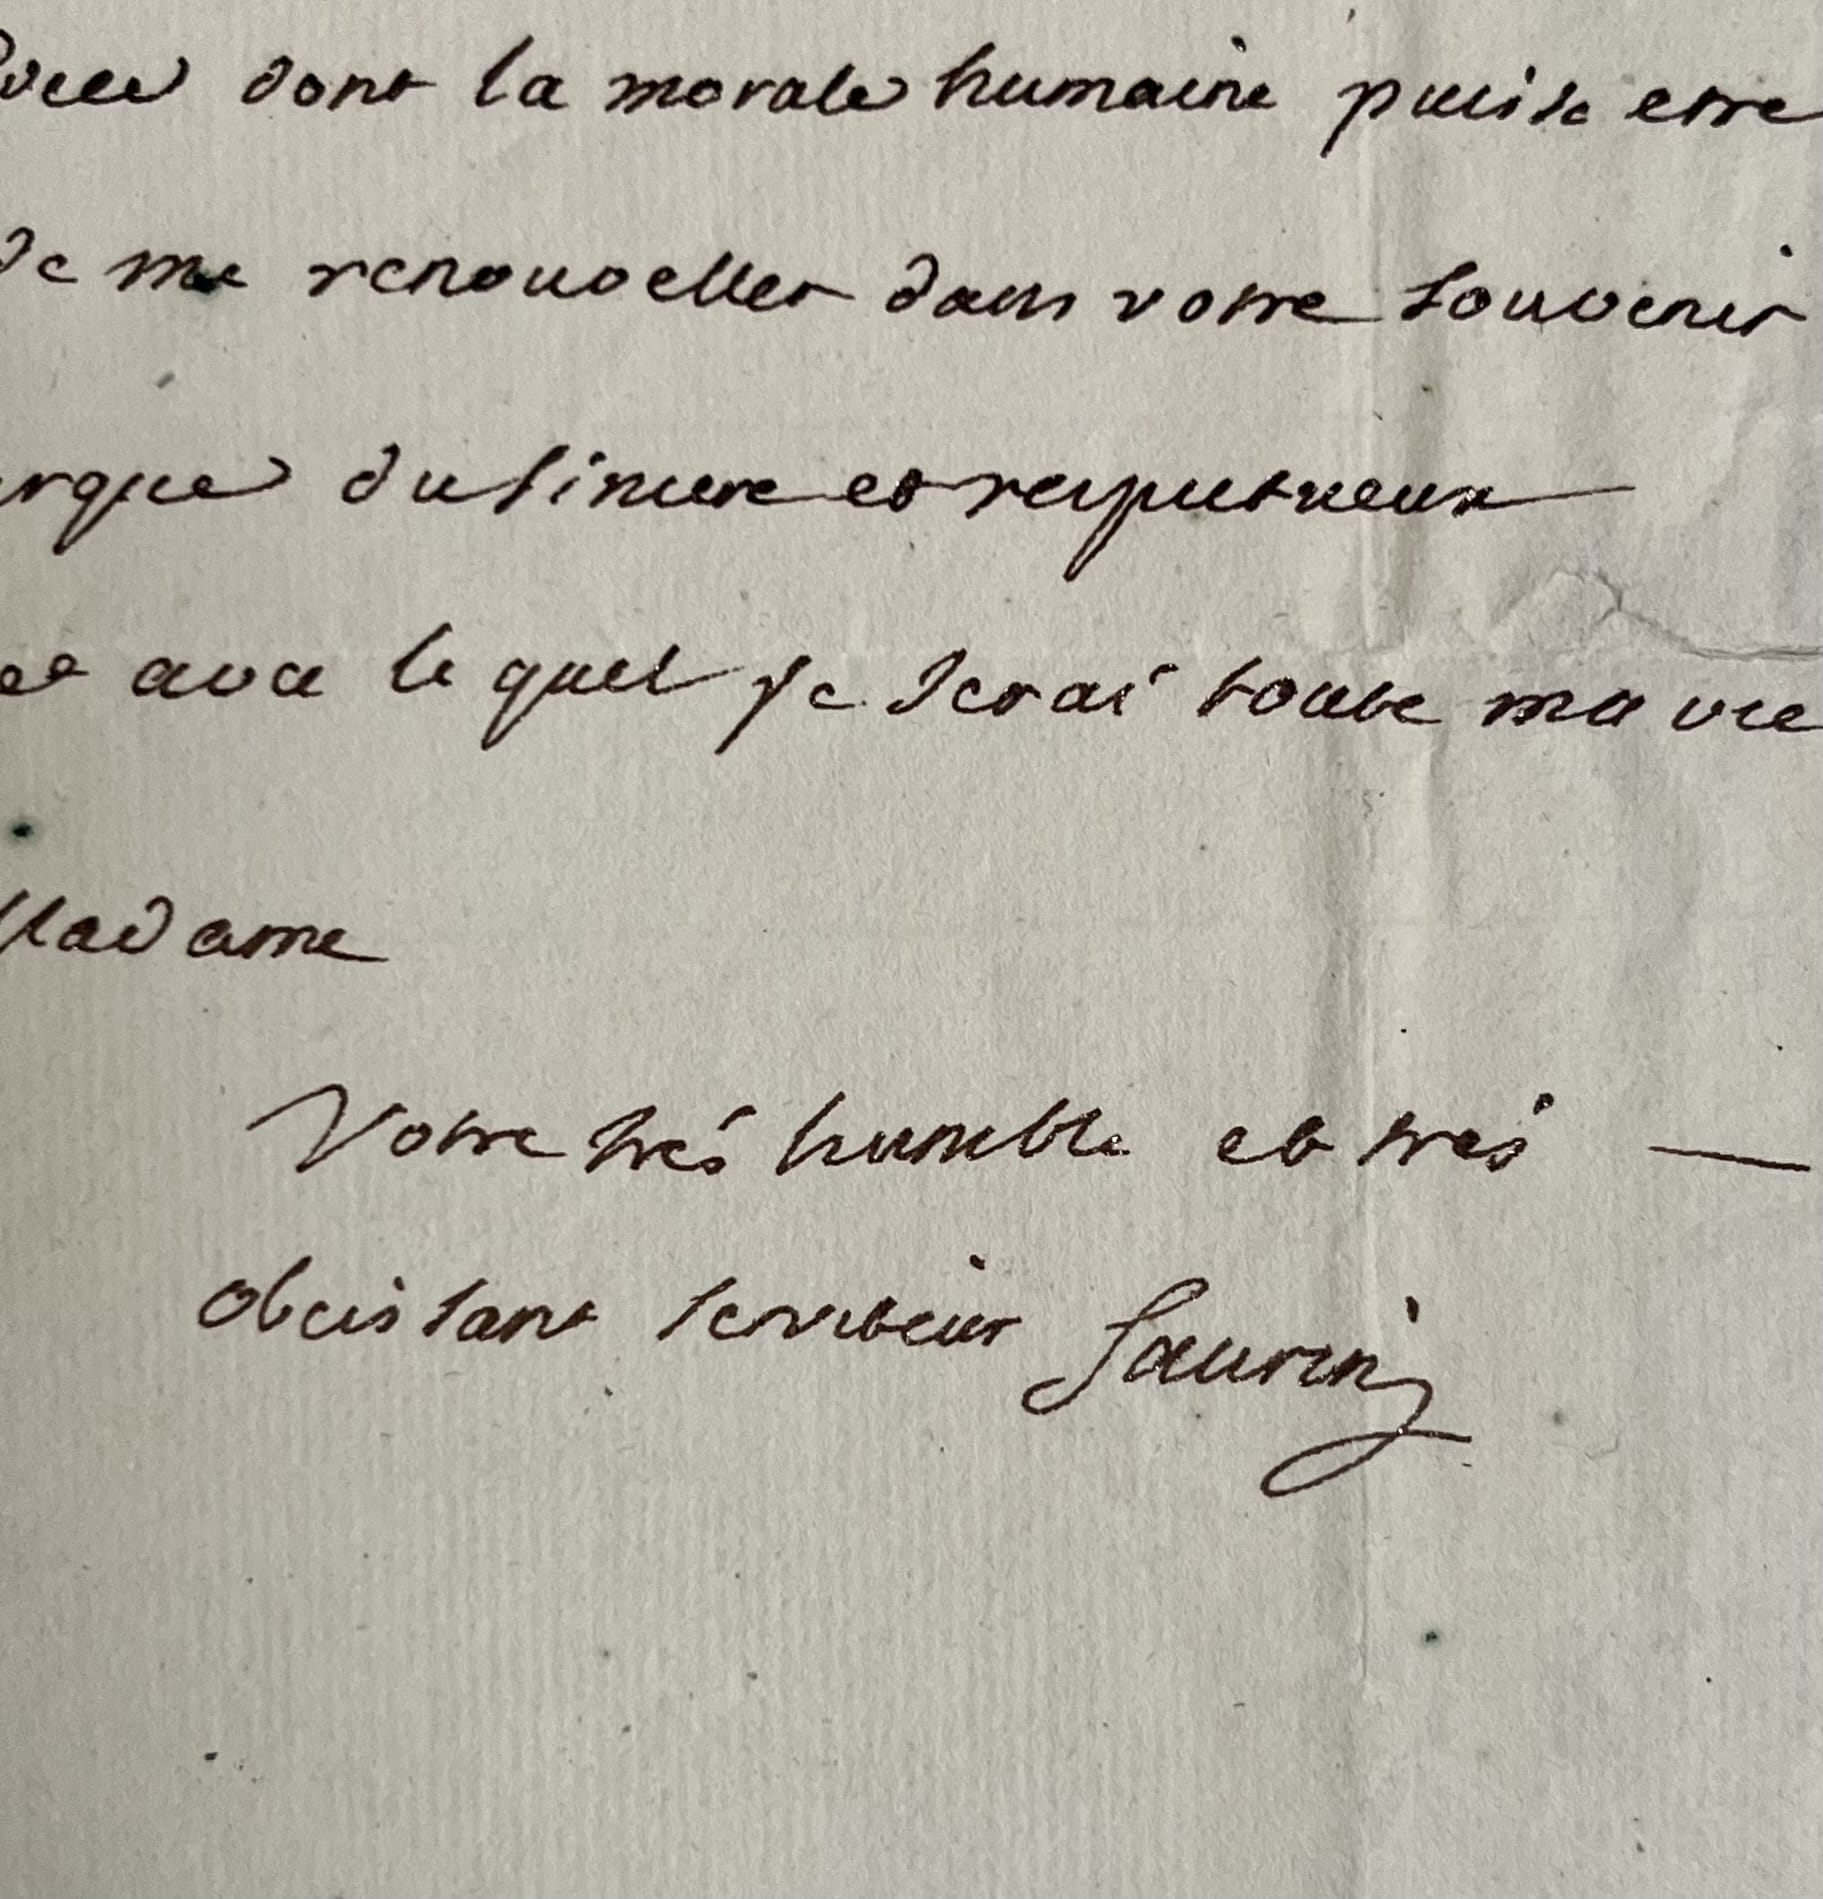 dont la morale humaine puisse etre
de me renouveller dans votre souvenir
du sincere et respectueux
et avec le quel je serai toute ma vie
Madame
Votre trés humble et trés —
obeissant serviteur Saurin